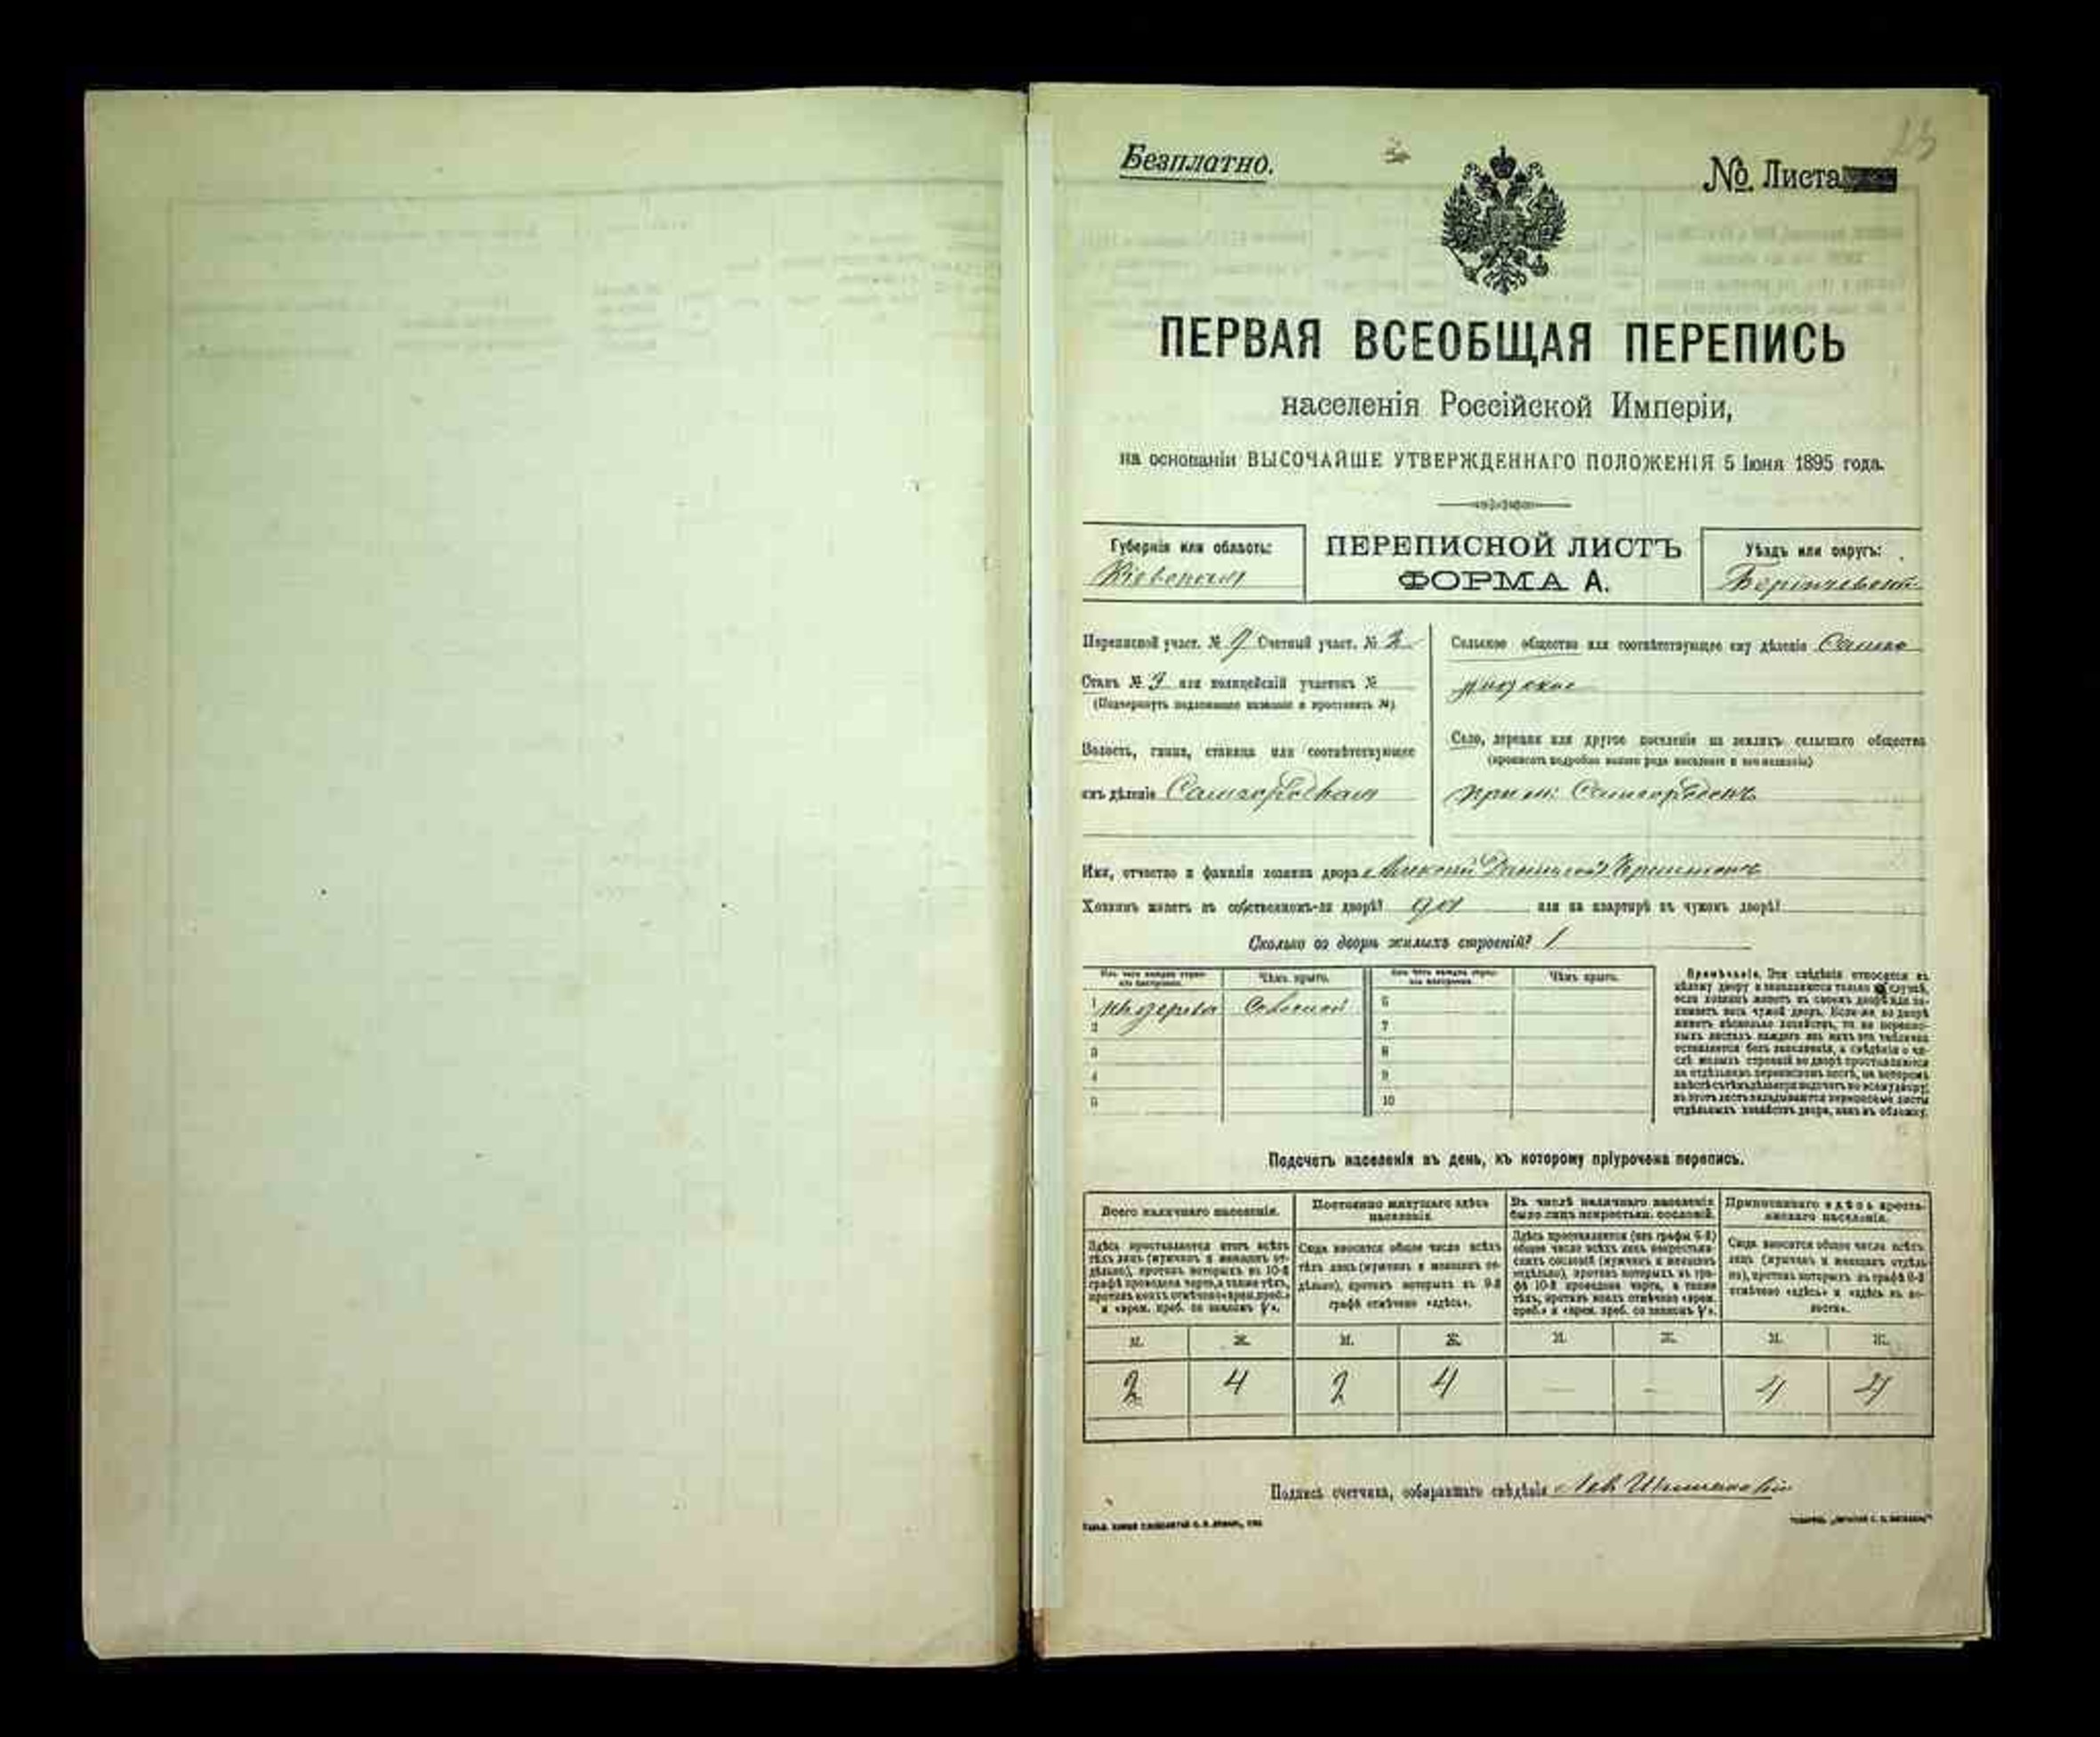 Безплатно.
№ Листа
ПЕРВАЯ ВСЕОБЩАЯ ПЕРЕПИСЬ
населенія Россійской Имперіи,
на основаніи ВЫСОЧАЙШЕ УТВЕРЖДЕННАГО ПОЛОЖЕНІЯ 5 Іюня 1895 года.
Губернія или область:
Кіевская
ПЕРЕПИСНОЙ ЛИСТЪ
ФОРМА А.
Уѣздъ или округъ:
Переписной участ. № Счетный участ. № 2
Станъ № или полицейскій участокъ №
(Подчеркнуть надлежащее названіе и проставить №)
Волость, гмина, станица или соотвѣтствующее
имъ дѣленіе Самгородская
Сельское общество или соотвѣтствующее ему дѣленіе
Село, деревня или другое поселеніе на земляхъ сельскаго общества
(прописать подробно какого рода поселеніе и его названіе)
Самгородокъ
Имя, отчество и фамилія хозяина двора
Хозяинъ живетъ въ собственномъ-ли дворѣ? да или на квартирѣ въ чужомъ дворѣ?
Сколько во дворѣ жилыхъ строеній? 1
Чѣмъ крыто. Чѣмъ крыто.
1 изъ дерева Соломой 6
2 7
3 8
4 9
5 10
Примѣчаніе. Эти свѣдѣнія относятся къ
цѣлому двору и заполняются только въ случаѣ,
если хозяинъ живетъ въ своемъ дворѣ или за-
нимаетъ весь чужой дворъ. Если-же во дворѣ
живетъ нѣсколько хозяйствъ, то на перепис-
ныхъ листахъ каждаго изъ нихъ эта табличка
оставляется безъ заполненія, а свѣдѣнія о чи-
слѣ жилыхъ строеній во дворѣ проставляются
на отдѣльномъ переписномъ листѣ, на которомъ
въ этотъ листъ вкладываются переписные листы
отдѣльныхъ хозяйствъ двора, какъ въ обложку.
Подсчетъ населенія въ день, къ которому пріурочена перепись.
Всего наличнаго населенія.
Постоянно живущаго здѣсь
населенія.
Въ числѣ наличнаго населенія
было лицъ некрестьян. сословій.
Приписаннаго здѣсь кресть-
янскаго населенія.
Здѣсь проставляется итогъ всѣхъ
тѣхъ лицъ (мужчинъ и женщинъ от-
дѣльно), противъ которыхъ въ 10-й
графѣ проведена черта, а также тѣхъ,
противъ коихъ отмѣчено «врем. преб.»
Сюда вносится общее число всѣхъ
тѣхъ лицъ (мужчинъ и женщинъ от-
дѣльно), противъ которыхъ въ 9-й
графѣ отмѣчено «здѣсь».
Сюда вносится общее число всѣхъ
лицъ (мужчинъ и женщинъ отдѣль-
но), противъ которыхъ въ графѣ 8-й
отмѣчено «здѣсь» и «здѣсь въ во-
лости».
М. Ж. М. Ж. М. Ж. М. Ж.
2 4 2 4 — - 4 4
Подпись счетчика, собиравшаго свѣдѣнія